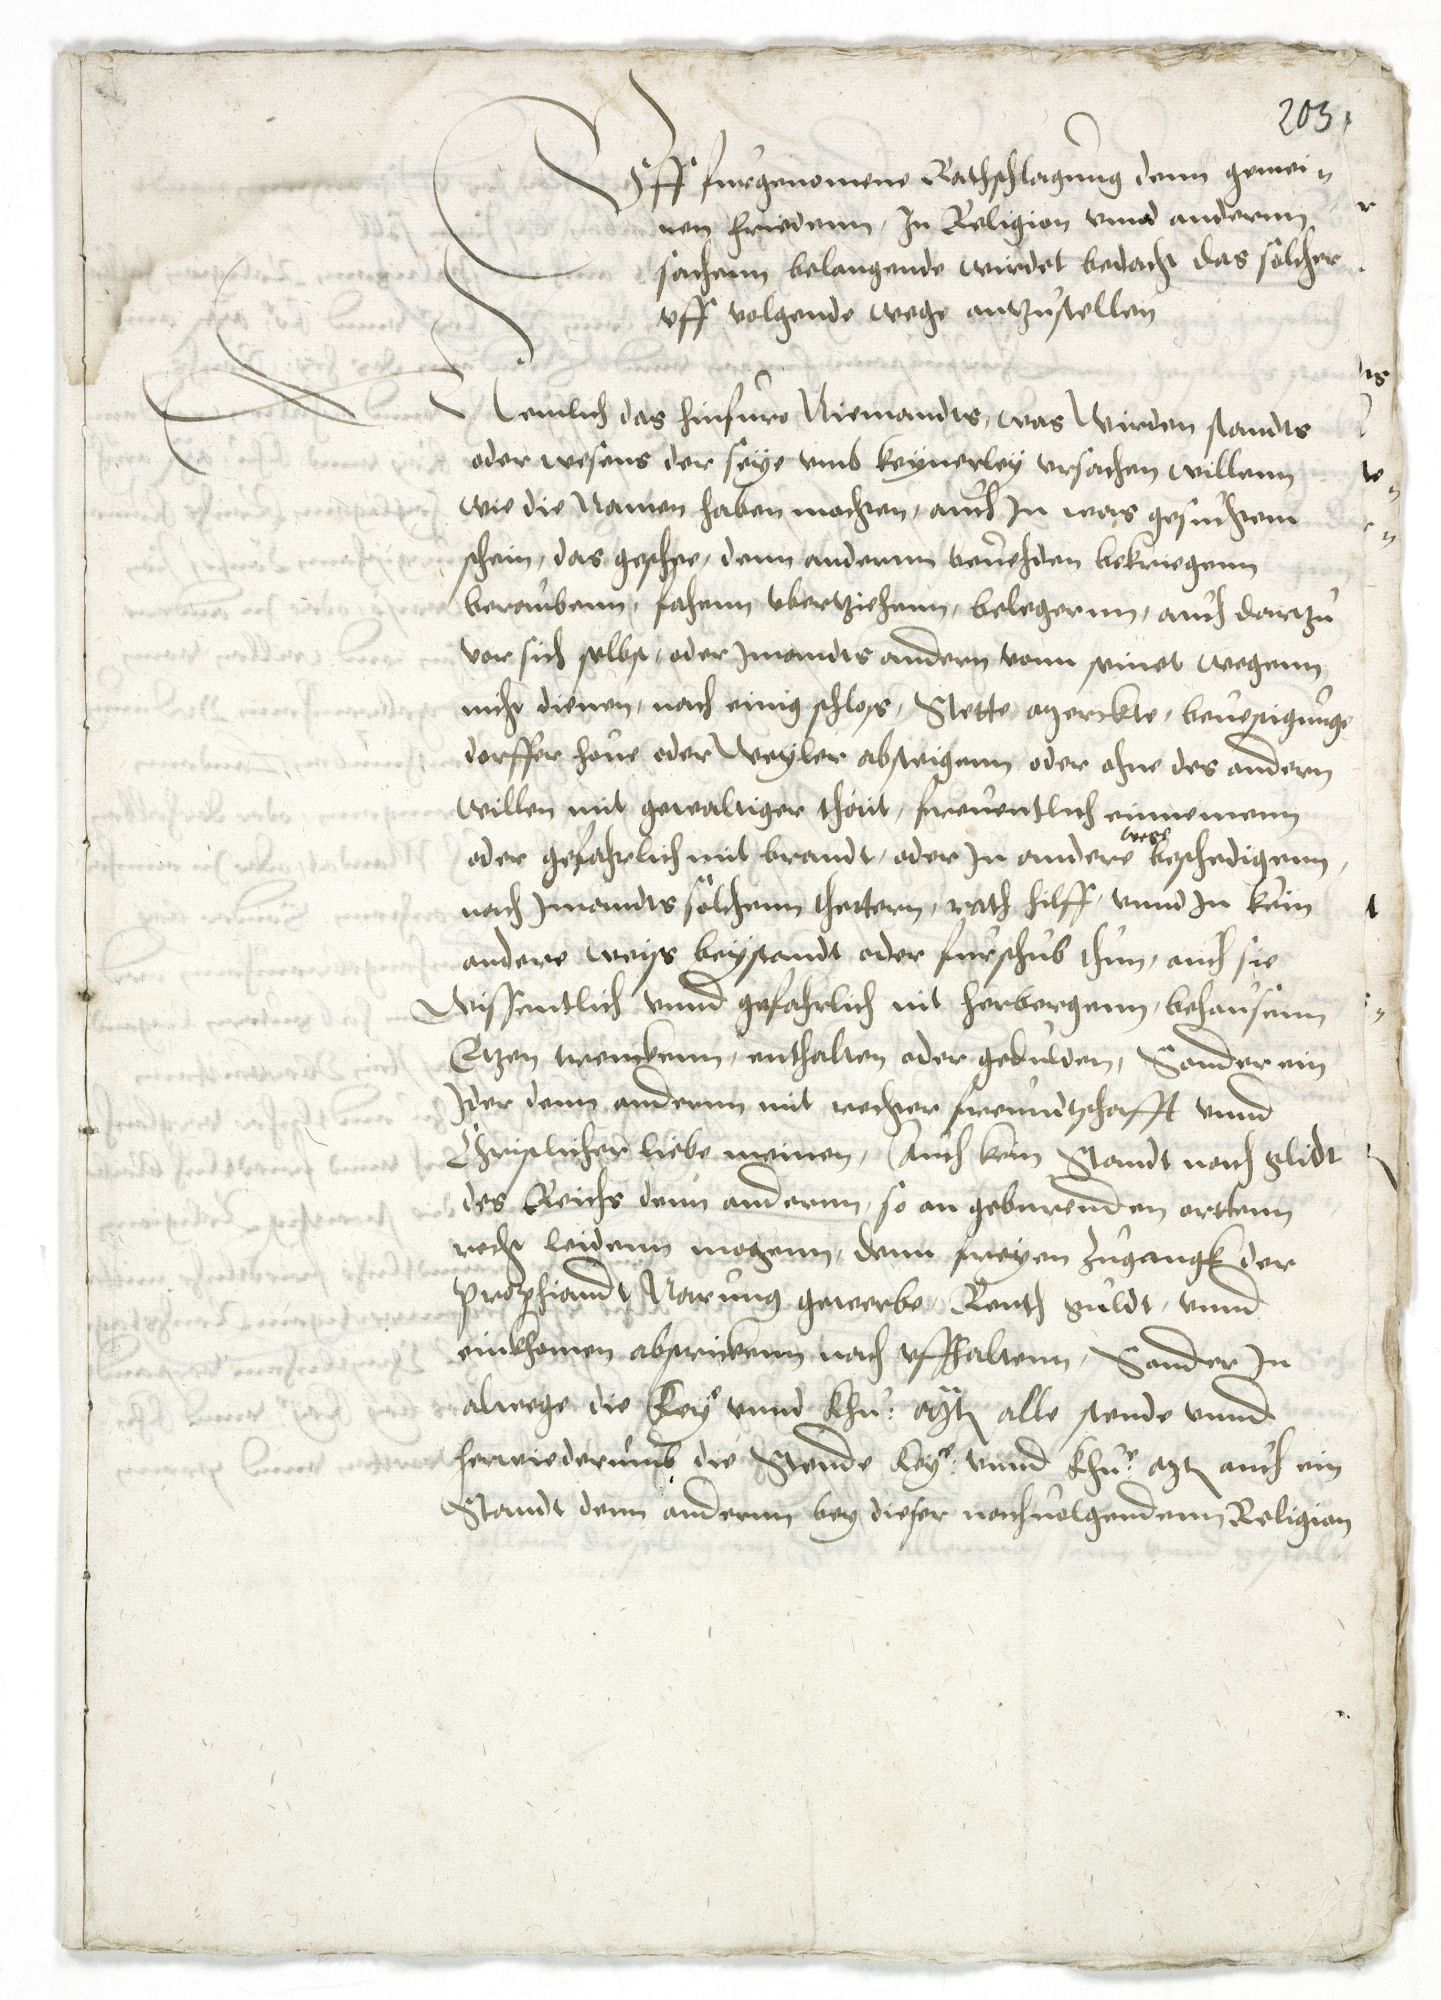 203
Vff furgenomene Rathschlagung denn gemei-
nen friedenn, In Religion vnnd andernn
sachenn belangende wurdet bedacht das solcher
vff volgende wege antzustellen
Nemlich das hinfuro Niemandts, was Wirden standts
oder wesens der seye vmb keynerley vrsachen willenn
wie die Namen haben mochten, auch In was gesuchtem
schein, das geschee, denn andernn beuehden bekriegenn
beraubenn, fahenn vbertziehenn, belegernn, auch dartzu
vor sich selbst, oder Jmandts andern vonn seinet wegenn
nicht dienen, noch einig schloss, Stette, merckte, beuestigunge
dorffer houe oder Weyler absteigenn oder ohne des andern
willen mit gewaltiger thatt, freuentlich einnemenn
oder gefahrlich mit brandt, oder In andere weg beschedigenn,
noch Jmandts solchenn thettern, rath hilff, vnnd In kein
andere weiss beystandt oder furschub thun, auch sie
wissentlich vnnd gefahrlich nit herbergenn, behausenn
Etzen trenckenn, enthalten oder gedulden, Sonder ein
Jder denn andernn mit rechter freundtschafft vnnd
Christlicher liebe meinen, Auch kein Standt noch glidt
des Reichs denn anderenn, so an geburenden orttenn
recht leidenn mogenn, denn freyen zugangk der
prophiandt, Narung gewerbe, Renth guldt, vnnd
einkhomen abstrickenn noch vffhaltenn, Sonder In
alwege die Key: vnnd Khu: Mt alle stende vnnd
herwiederumb die Stende Key: vnnd Khu: Mt auch ein
Standt denn anderenn bey dieser nachuolgendenn Religion